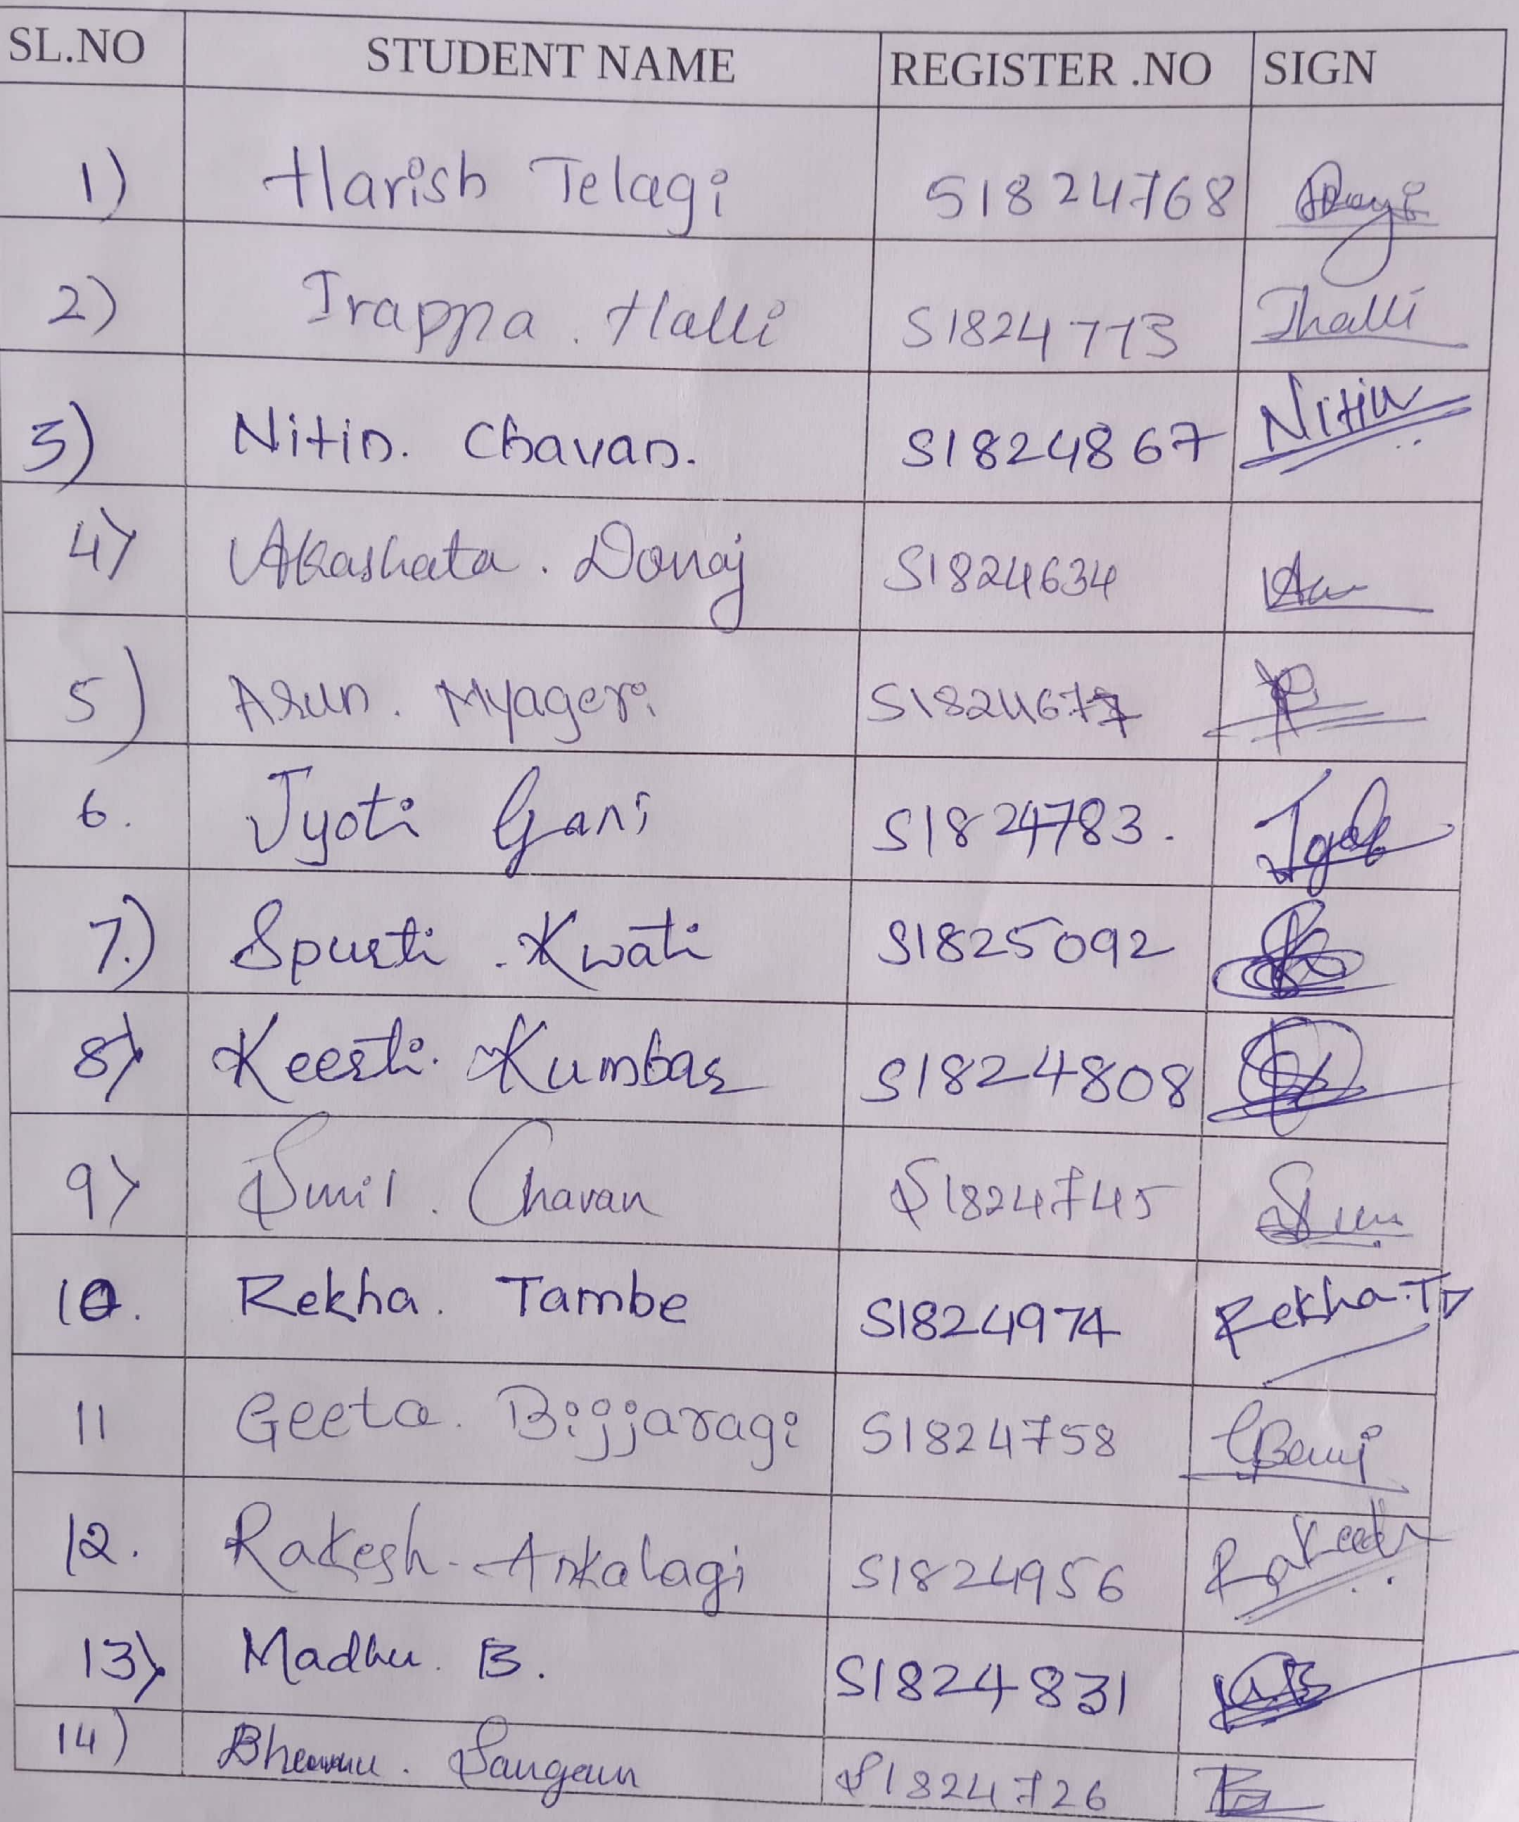 SL.NO STUDENT NAME REGISTER .NO SIGN
1) Harish Telagi S1824768
2) Irappa . Halli S1824773 Ihalli
3) Nitin. Chavan. S1824867 Nitin
4) Akashata . Donaj S1824634
5) Arun . Myageri
6. Jyoti Gani S1824783.
7.) Spurti . Kwati S1825092
8) Keerti. Kumbar S1824808
9) Sunil . Chavan S1824745
10. Rekha. Tambe S1824974 Rekha.T
11 Geeta . Bijjaragi S1824758
12. Rakesh - Ankalagi S1824956 Rakesh
13) Madhu. B. S1824831
14) S1824726